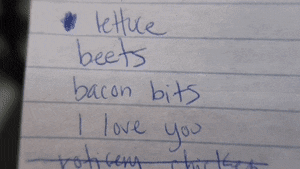 lettuce
beets
bacon bits
I love you